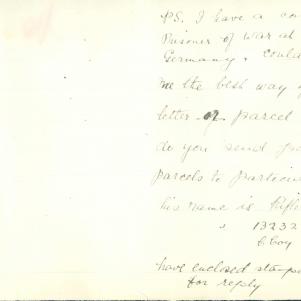 P.S. I have a co
Prisoner of War at
Germany, could
me the best way
letter or parcel
do you send
parcels to particu
his name is Rifle
" 13232
C Coy
have enclosed stamped
for reply